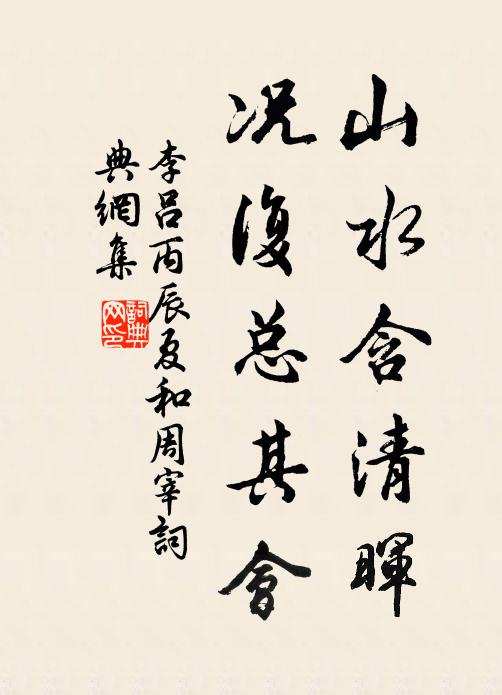 山水含清暉
况復总其會
李吕丙辰夏和周宰詞
典網集
詞典網印